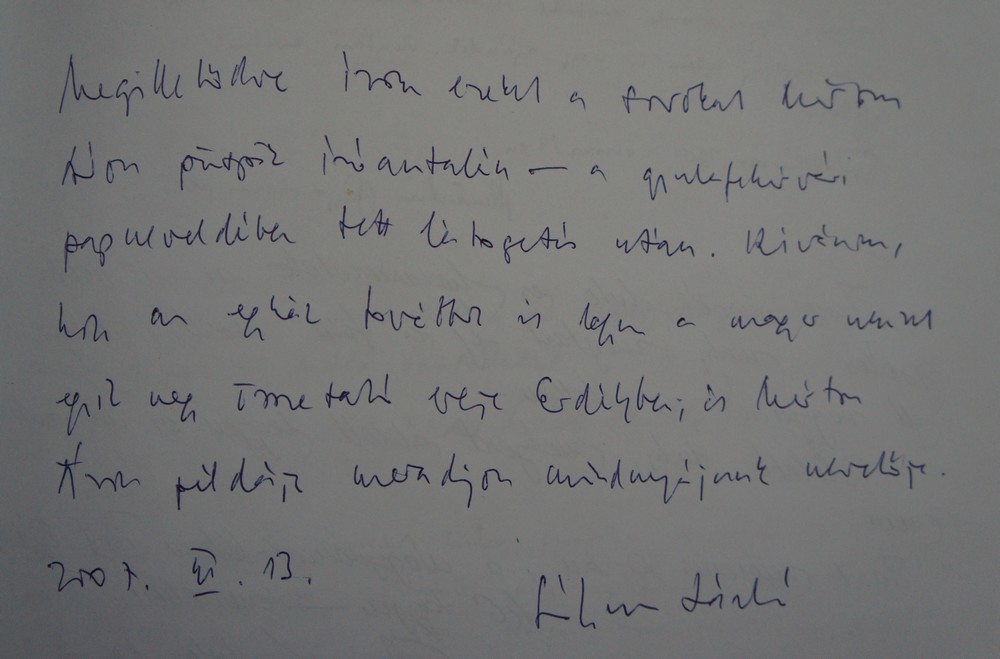 Megilletődve írom ezeket a sorokat Márton
Áron püspök íróasztalán — a gyulafehérvári
papneveldében tett látogatás után. Kívánom,
hogy az egyház továbbra is legyen a magyar nemzet
egyik nagy összetartó ereje Erdélyben, és Márton
Áron példája maradjon mindnyájunk nevelője.
2007. XI. 13.
Sólyom László